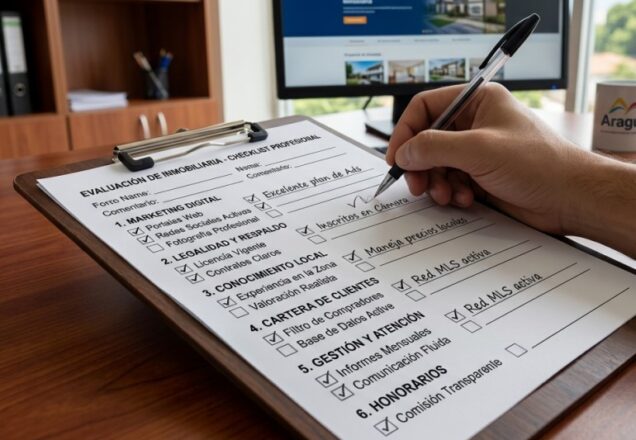 EVALUACIÓN DE INMOBILIARIA - CHECKLIST PROFESIONAL
Forro Name:
Nsma:
Comentario:
Comentario:
1. MARKETING DIGITAL
Portales Web
Redes Sociales Activas
Fotografía Profesional
Excelente plan de Ads
2. LEGALIDAD Y RESPALDO
Licencia Vigente
Contratos Claros
Inscritos en Cámara
3. CONOCIMIENTO LOCAL
Experiencia en la Zona
Valoración Realista
Maneja precios locales
4. CARTERA DE CLIENTES
Filtro de Compradores
Base de Datos Active
Red MLS activa
5. GESTIÓN Y ATENCIÓN
Informes Mensuales
Comunicación Fluida
Red MLS activa
6. HONORARIOS
Comisión Transparente
Aragu